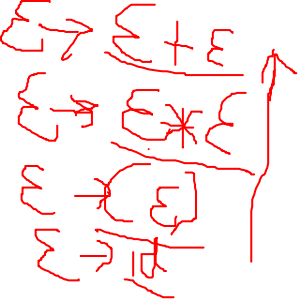 E → E + E
E → E * E
E → (E)
E → id